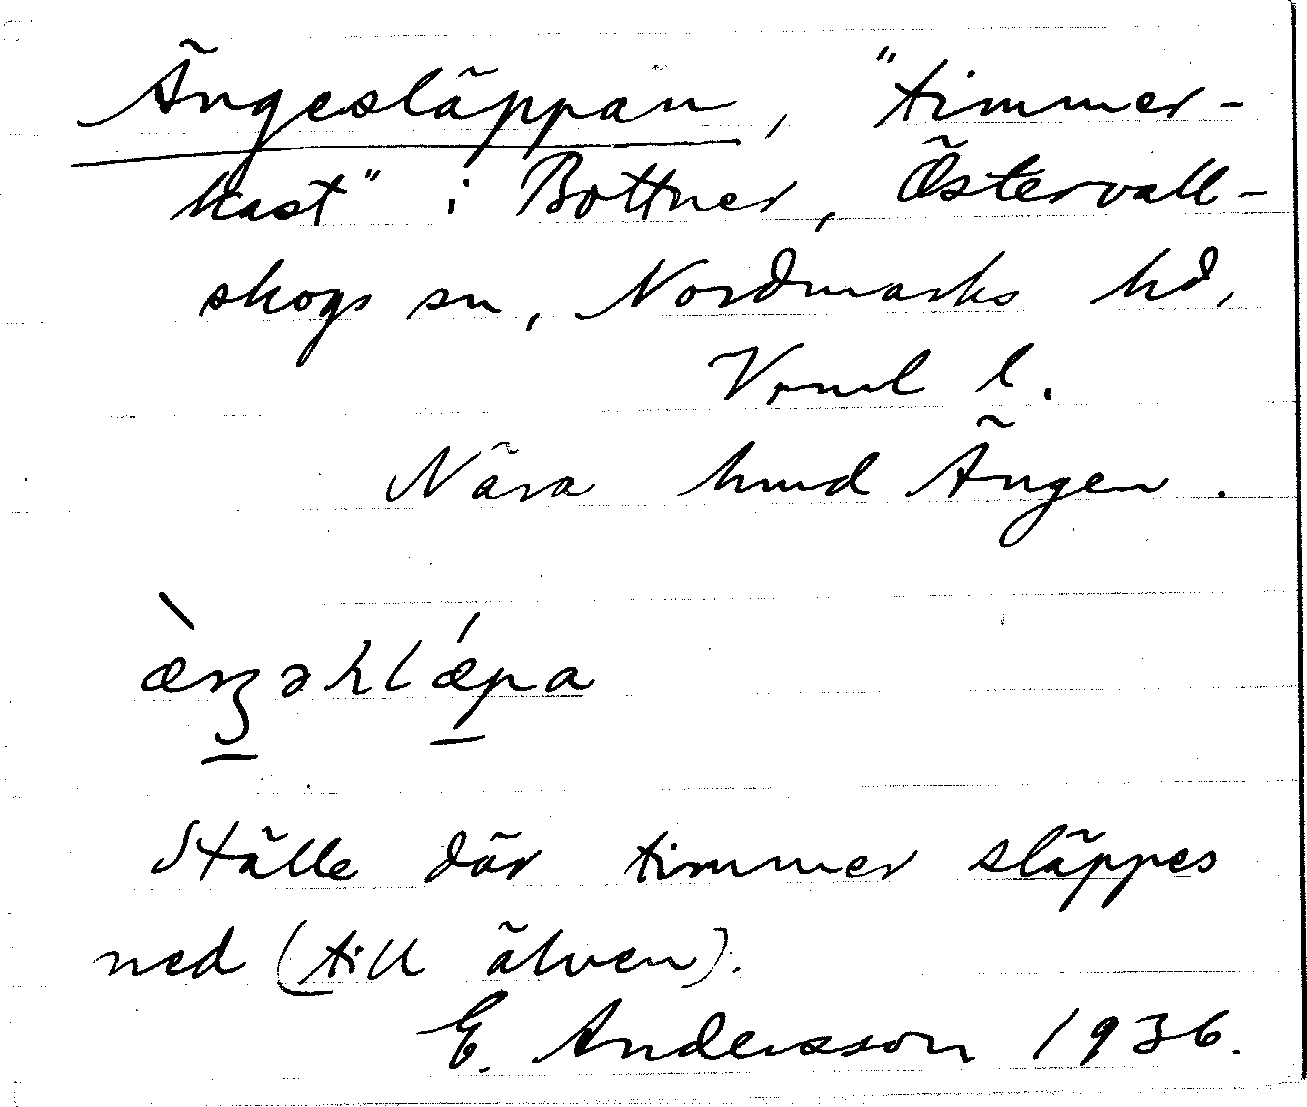 Ängesläppan, "timmer-
kast" i Bottner, Östervall-
skogs sn, Nordmarks hd,
Vrml l.
Nära hmd Ängen.
Ställe där timmer släppes
ned (till älven).
E. Andersson 1936.